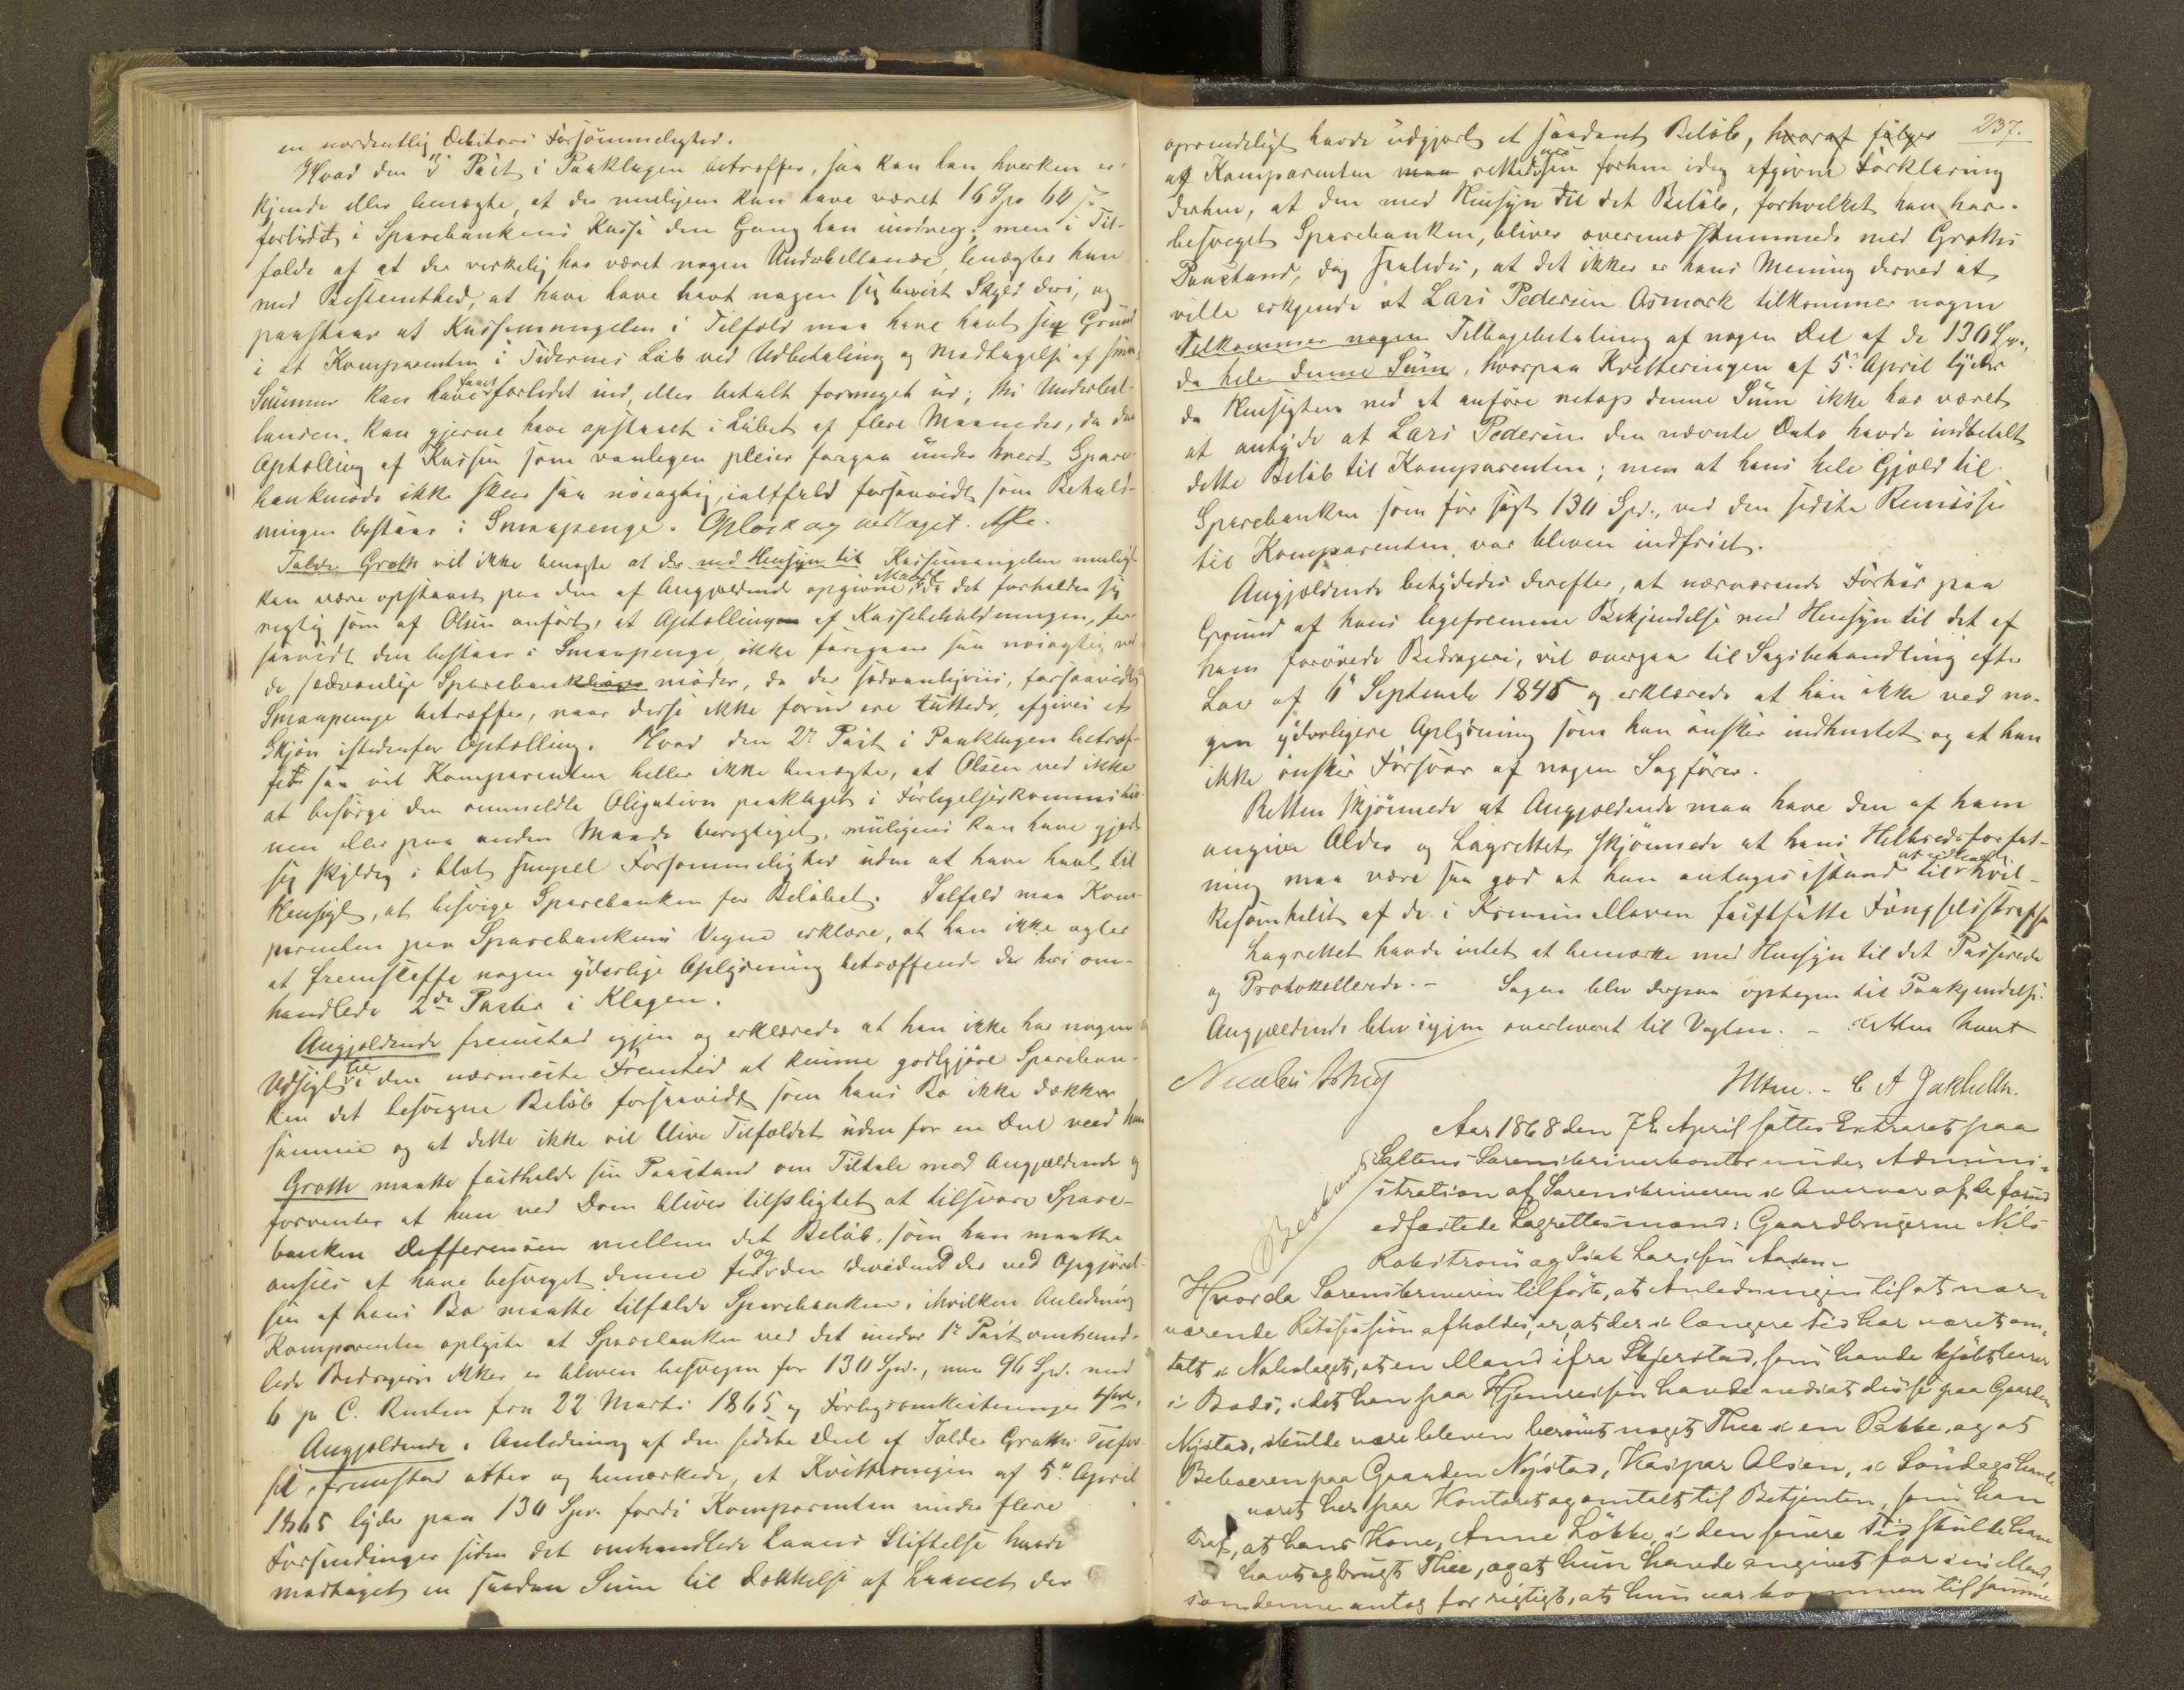 en uordentlig Debitors Forsømmelighed.
Hvad den 3' Post i Paaklagen betræffer, saa kan han hverken er-
kjende eller benægte, at der muligens kan have været 16 Spd 60 s
forlidet i Sparebankens Kasse den Gang han undveg; men i Til-
fælde af at der virkelig har været nogen Underbellance, benægter han
med Bestemthed, at have havt nogen sig bevist Skyld deri, og
paastaar at Kassemangelen i Tilfæld maa have havt sin Grund
i at Komparenten i Tidernes Løb ved Udbetaling og Modtagelse af smaa
Summer kan have faaet forlidet ind, eller betalt formeget ud; thi Underbal-
lancen kan gjerne have opstaaet i Løbet af flere Maaneder, da den
Optælling af Kassen som vanligen pleier foregaa under hvert Spare-
bankmøde ikke skeer saa nøiagtig, ialfald forsaavidt som Behold-
ningen bestaar i Smaapenge. Oplæst og vedtaget. Aftr.
Tolder Groth vil ikke benægte at der med Hensyn til Kassemangelen muligt
kan være opstaaet paa den af Angjældende opgivne Maade, da det forholder sig
rigtig som af Olsen anført, at Optællingen af Kassebeholdningen, for-
saavidt den bestaar i Smaapenge, ikke foregaar saa nøiagtig ved
de sædvanlige Sparebank møder, da der sædvanligviis, forsaavidt
Smaapenge betræffer, naar disse ikke forud ere tuttede, afgives et
Skjøn istedenfor Optælling. Hvad den 2' Post i Paaklagen betræf-
fer saa vil Komparenten heller ikke benægte, at Olsen ved ikke
at besørge den ommeldte Obligation paaklaget i Forligelseskommissio-
nen eller paa anden Maade berigtiget, muligens kan have gjort
sig skyldig i blot simpel Forsømmelighed uden at have havt til
Hensigt, at besvige Sparebanken for Beløbet. Ialfald maa Kom-
parenten paa Sparebankens Vegne erklære, at han ikke agter
at fremskaffe nogen yderlige Oplysning betræffende de heri om-
handlede 2de Poster i Klagen.
Angjældende fremstod igjen og erklærede at han ikke har nogen
Udsigt til i den nærmeste Fremtid at kunne godtgjøre Spareban-
ken det besvegne Beløb forsaavidt som hans Bo ikke dækker
samme og at dette ikke vil blive Tilfældet uden for en Deel veed han
Groth maatte fastholde sin Paastand om Tiltale mod Angjældende og
forventer at han ved Dom bliver tilpligtet at tilsvare Spare-
banken Differensen mellem det Beløb, som han maatte
ansees at have besveget denne for og den Dividend der ved Opgjørel-
sen af hans Bo maatte tilfalde Sparebanken, ihvilken Anledning
Komparenten oplyste at Sparebanken ved det under 1' Post omhand-
lede Bedrageri ikke er bleven besvegen for 130 Spd., men 96 Spd. med
6 pr C. Renter fra 22 Marts 1865 og Forligsomkostninger
Angjældende i Anledning af den sidste Deel af Tolder Groths Tilfør-
sel, fremstod atter og bemærkede, at Kvitteringen af 5' April
1865 lyder paa 130 Spd. fordi Komparenten under flere
Forsendinger siden det omhandlede Laans Stiftelse havde
modtaget en saadan Sum til Dækkelse af Laanet der
237.
oprindeligt havde udgjort et saadant Beløb, hvoraf følger
at Komparenten maa rettede sin forhen idag afgivne Forklaring
derhen, at den med Hensyn til det Beløb, forhvilket han har
besveget Sparebanken, bliver overensstemmende med Groths
Paastand, dog saaledes, at det ikke er hans Mening derved at
ville erkjende at Lars Pedersen Asmark tilkommer nogen
Tilkommer nogen Tilbagebetaling af nogen Del af de 130 Spd.,
da hele denne Sum, hvorpaa Kvitteringen af 5' April lyder
da Hensigten ved at anføre netop denne Sum ikke har været
at antyde at Lars Pedersen den nævnte Dato havde indbetalt
dette Beløb til Komparenten; men at hans hele Gjæld til
Sparebanken som før sagt 130 Spd., ved den sidste Remisse
til Komparenten, var bleven indfriet.
Angjældende betydedes derefter, at nærværende Forhør paa
Grund af hans uforbeholdne Bekjendelse med Hensyn til det af
ham forøvede Bedrageri, vil overgaa til Sagsbehandling efter
Lov af 6' September 1845 og erklærede at han ikke ved no-
gen yderligere Oplysning som han ønsker indhentet og at han
ikke ønsker Forsvar af nogen Sagfører.
Retten skjønnede at Angjældende maa have den af ham
angivne Alder og Lagrettet skjønnede at hans Helbredsforfat-
ning maa være saa god at han antages istand til at udholde hvil-
kensomhelst af de i Kriminalloven fastsatte Fængselsstraffe
Lagrettet havde intet at bemærke med Hensyn til det Passerede
og Protokollerede. – Sagen blev derpaa optagen til Paakjendelse.
Angjældende blev igjen overleveret til Vagten. – Retten hævet
C A Jakhelln.
Aar 1868 den 7de April sattes Extraret paa
Saltens Sorenskriverkontor under Admini-
stration af Sorenskriveren i Overvær af de forud
edfæstede Lagrettesmænd: Gaardbrugerne Nils
Robstrøm og Isak Larsen Aasen –
Hvorda Sorenskriveren tilførte, at Anledningen til at nær-
værende Retssession afholdes, er, at der i længere Tid har været om-
talt i Nabolaget, at en Mand ifra Skjerstad, som havde kjøbt varer
i Bodø, idet han paa Hjemreisen havde nedsat disse paa Gaarden
Nystad, skulde være bleven berøvet noget Thee i en Pakke, og at
Beboeren paa Gaarden Nystad, Kaspar Olsen, i Søndags havde
været her paa Kontoret og omtalt til Betjenten, som han
traf, at hans Kone, Anne Løkke, i den senere Tid skulde have
havt og brugt Thee, og at hun havde angivet for sin Mand,
som denne antog for rigtigt, at hun var kommen til samme